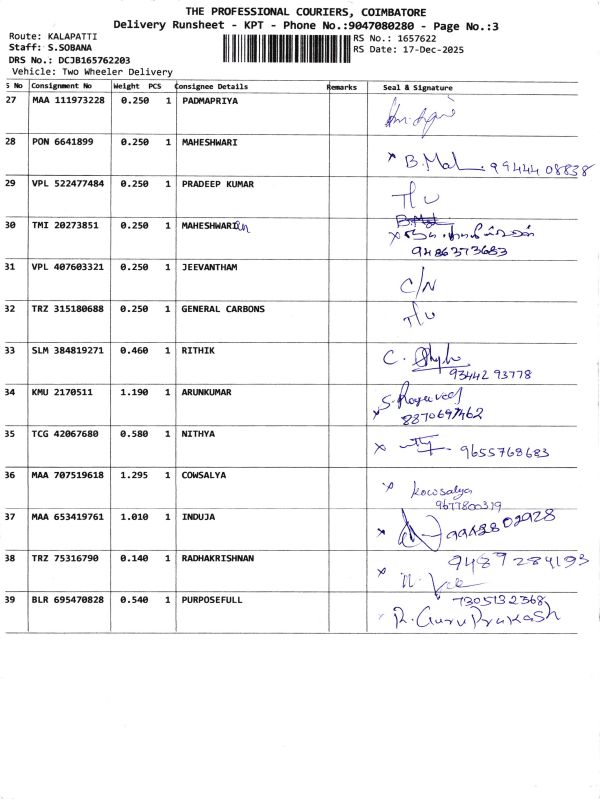 THE PROFESSIONAL COURIERS, COIMBATORE
Delivery Runsheet - KPT - Phone No.:9047080280 - Page No.:3
Route: KALAPATTI RS No.: 1657622
Staff: S.SOBANA RS Date: 17-Dec-2025
DRS No.: DCJB165762203
Vehicle: Two Wheeler Delivery
S No Consignment No Weight PCS Consignee Details Remarks Seal & Signature
27 MAA 111973228 0.250 1 PADMAPRIYA
28 PON 6641899 0.250 1 MAHESHWARI
x B.Mal. 99444 08838
29 VPL 522477484 0.250 1 PRADEEP KUMAR
T/U
30 TMI 20273851 0.250 1 MAHESHWARI
9486373683
31 VPL 407603321 0.250 1 JEEVANTHAM
C/N
32 TRZ 315180688 0.250 1 GENERAL CARBONS
T/U
33 SLM 384819271 0.460 1 RITHIK
C.
93442 93778
34 KMU 2170511 1.190 1 ARUNKUMAR
x
35 TCG 42067680 0.580 1 NITHYA
x - 9655768683
36 MAA 707519618 1.295 1 COWSALYA
x kowsalya
9677800319
37 MAA 653419761 1.010 1 INDUJA
x
38 TRZ 75316790 0.140 1 RADHAKRISHNAN
9489284193
x
39 BLR 695470828 0.540 1 PURPOSEFULL
7305132368
x R. Guru Prakash